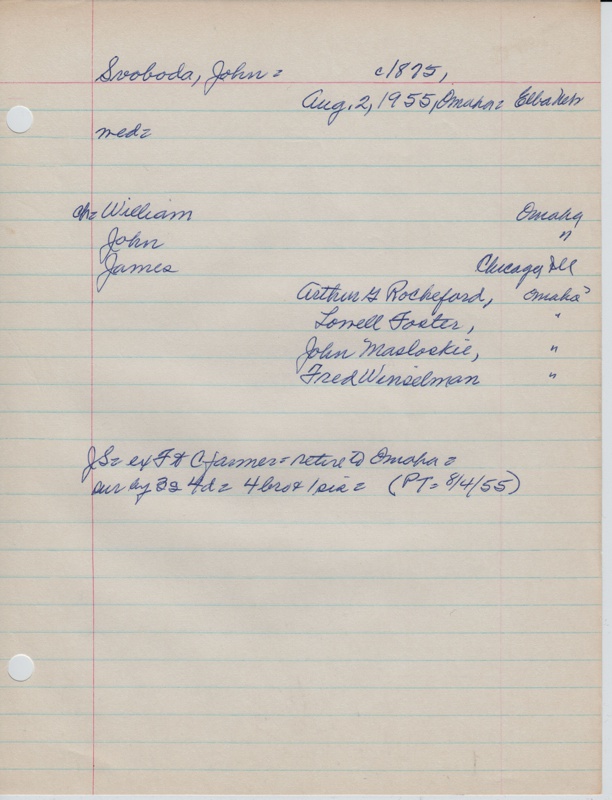 Svoboda, John = c1875,
Aug. 2, 1955, Omaha = Elba Nebr
med =
ch = William Omaha
John "
James Chicago Ill
Arthur G Rocheford, Omaha
Lowell Foster, "
John Masloskie, "
Fred Winselman "
JS = ex F & C farmer = retire to Omaha =
sur by 3s 4d = 4 bro + 1 sis = (PT = 8/4/55)